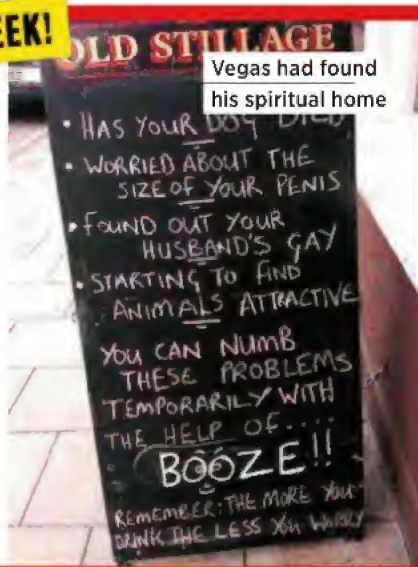 EEK!
OLD STILLAGE
Vegas had found
his spiritual home
• HAS YOUR DOG DIED
• WORRIED ABOUT THE
SIZE OF YOUR PENIS
• FOUND OUT YOUR
HUSBAND'S GAY
• STARTING TO FIND
ANIMALS ATTRACTIVE
YOU CAN NUMB
THESE PROBLEMS
TEMPORARILY WITH
THE HELP OF....
BOOZE!!
REMEMBER: THE MORE YOU
DRINK THE LESS YOU WORRY